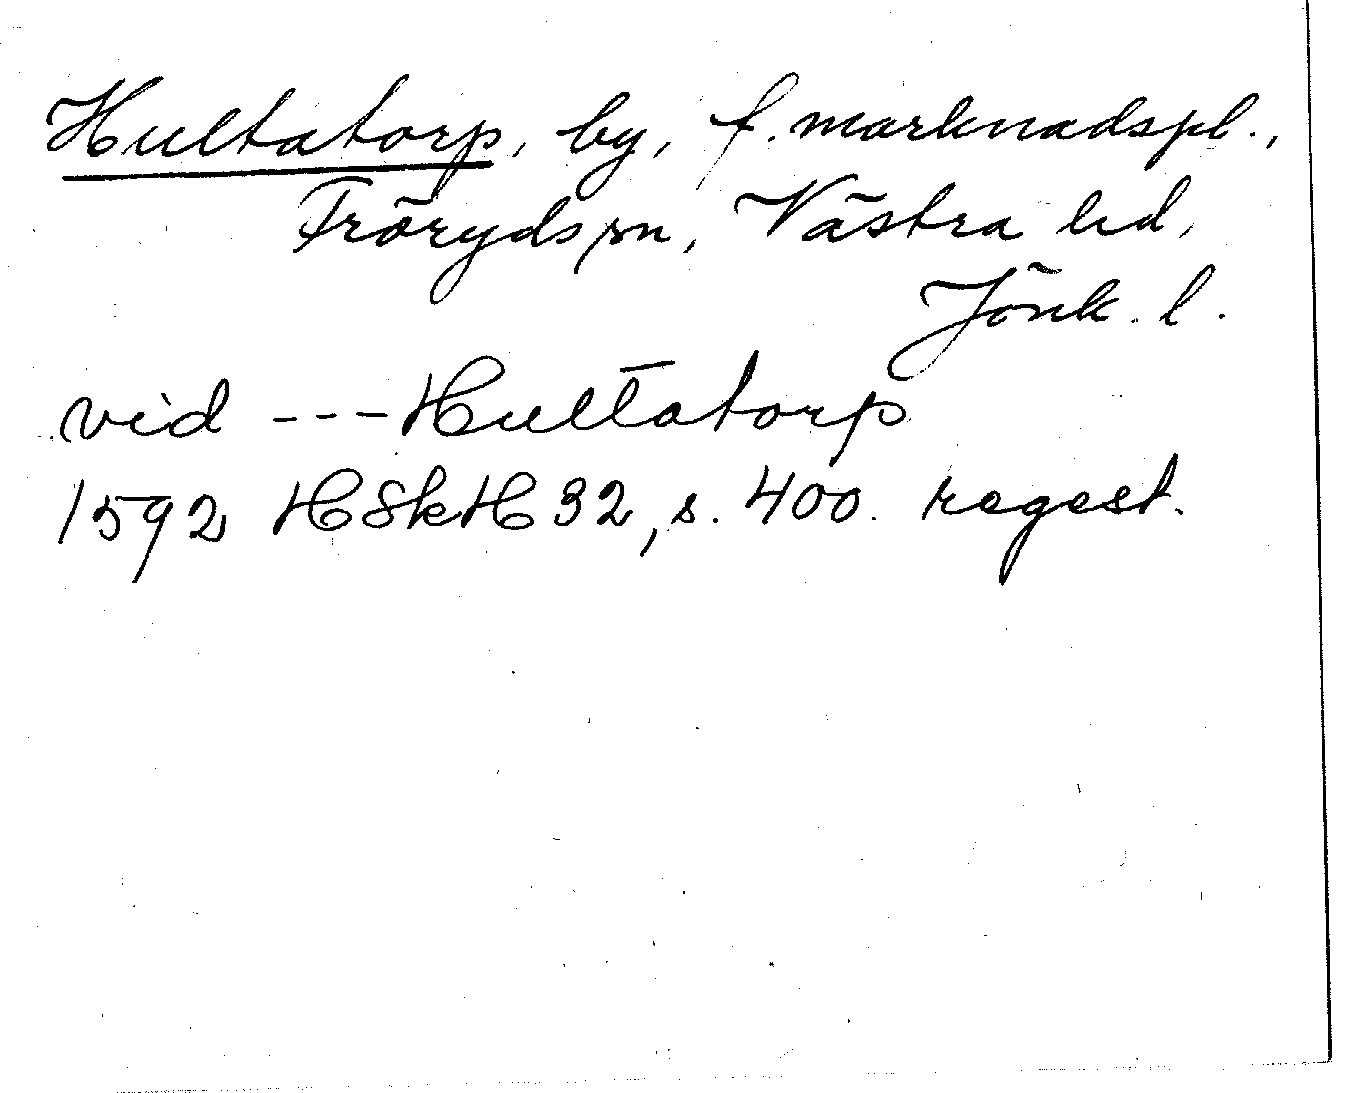 Hultatorp, by, f. marknadspl.,
Fröryds sn, Västra hd,
Jönk. l.
vid --- Hultatorp
1592 HSkH 32, s. 400. regest.